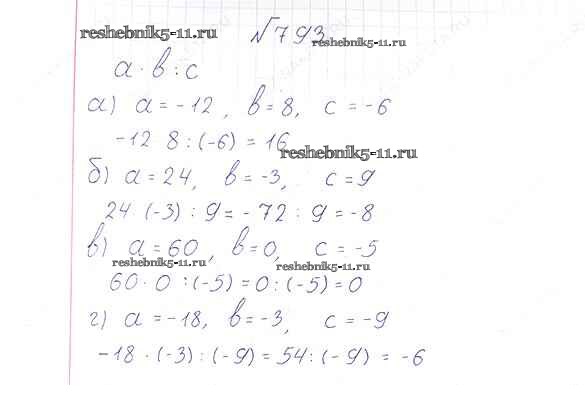 reshebnik5-11.ru №793
reshebnik5-11.ru
a · b : c
а) a = -12, b = 8, c = -6
-12 8 : (-6) = 16
reshebnik5-11.ru
б) a = 24, b = -3, c = 9
24 (-3) : 9 = -72 : 9 = -8
в) a = 60, b = 0, c = -5
reshebnik5-11.ru reshebnik5-11.ru
60 · 0 : (-5) = 0 : (-5) = 0
г) a = -18, b = -3, c = -9
-18 · (-3) : (-9) = 54 : (-9) = -6